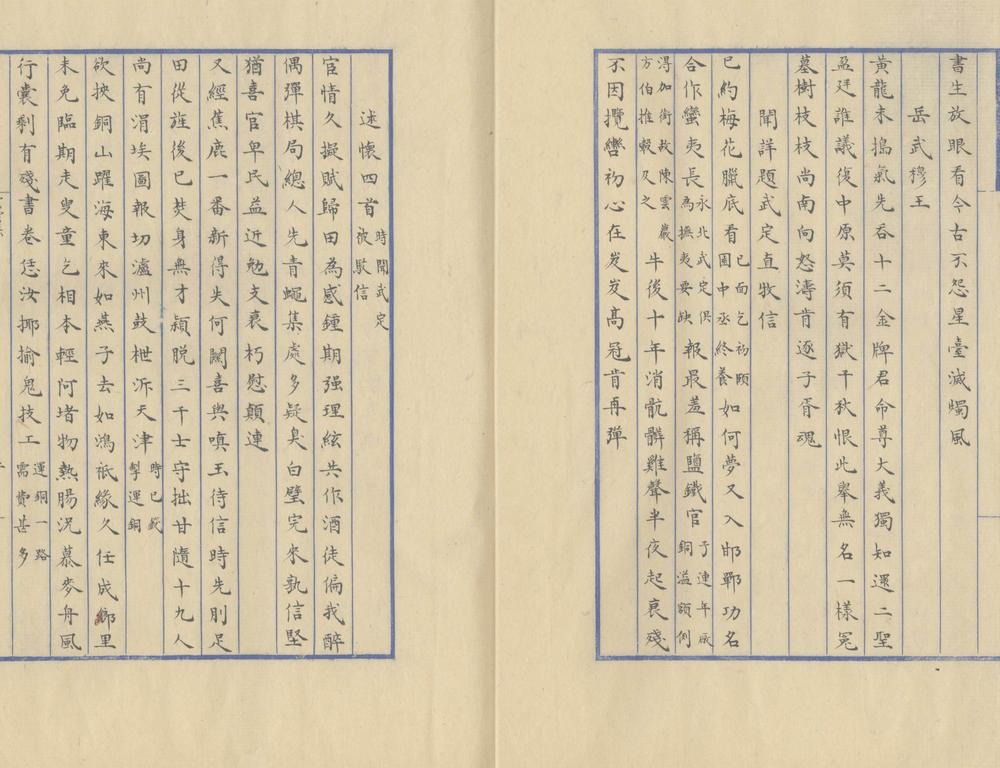 書生放眼看今古不怨星臺滅燭風
岳武穆王
黃龍未搗氣先吞十二金牌君命尊大義獨知還二聖
盈廷誰議復中原莫須有獄千秋恨此舉無名一樣冤
墓樹枝枝尚南向怒濤肯逐子胥魂
聞詳題武定直牧信
已約梅花臘底看已面乞初願圖中丞終養如何夢又入邯鄲功名
合作蠻夷長永北武定俱為撫夷要缺報最羞稱鹽鐵官予連年廠銅溢額例
得加銜故陳雲巖方伯推轂及之牛後十年消骯髒雞聲半夜起衰殘
不因攬轡初心在岌岌高冠肯再彈
述懷四首時聞武定被駁信
宦情久擬賦歸田為感鍾期强理絃共作酒徒偏我醉
偶彈棋局總人先青蠅集處多疑臭白璧完來孰信堅
猶喜官卑民益近勉支衰朽慰顛連
又經蕉鹿一番新得失何關喜與嗔玉待信時先刖足
田從誑後已焚身無才穎脫三千士守拙甘隨十九人
尚有涓埃圖報切瀘州鼓枻泝天津時已蔵掣運銅
欲挾銅山躍海東來如燕子去如鴻祇緣久任成鄉里
未免臨期走叟童乞相本輕阿堵物熱腸況慕麥舟風
行囊剩有殘書卷恁汝揶揄鬼技工運銅一路需費甚多